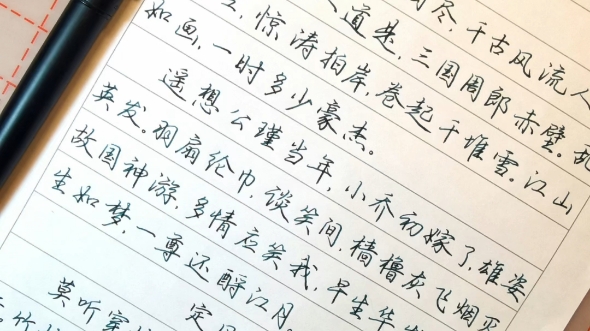 尽，千古风流人
人道是，三国周郎赤壁。乱
惊涛拍岸，卷起千堆雪。江山
如画，一时多少豪杰。
遥想公瑾当年，小乔初嫁了，雄姿
英发。羽扇纶巾，谈笑间，樯橹灰飞烟
故国神游，多情应笑我，早生华
生如梦，一尊还酹江月。
定
莫听穿
竹